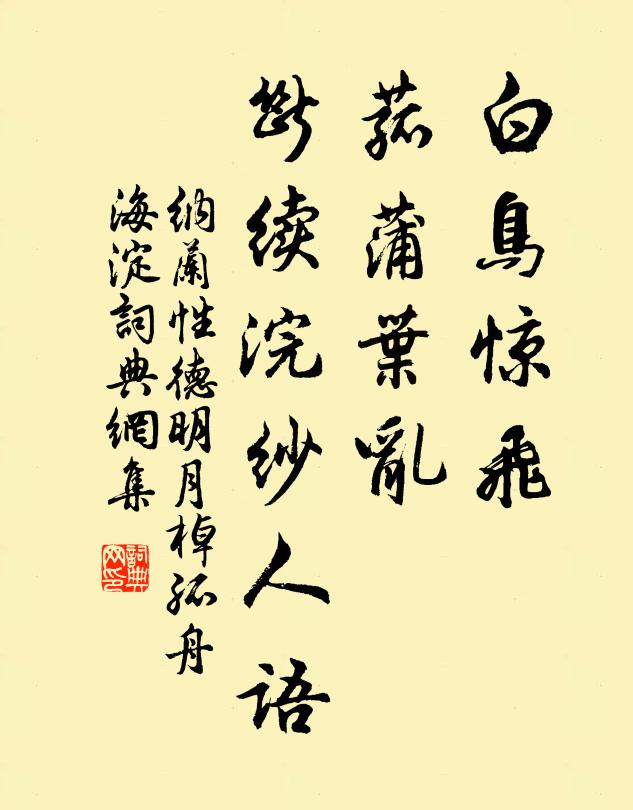 白鳥惊飛
菰蒲葉亂
斷續浣紗人語
納蘭性德明月棹孤舟
海淀詞典網集
詞典
网印